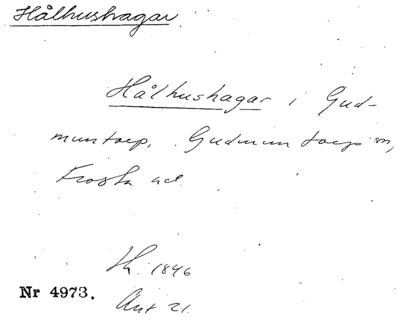 Hålhushagar
Hålhushagar i Gud-
muntorp, Gudmuntorps sn,
Frosta hd.
Sk. 1846
Nr 4973.
Ant 21.